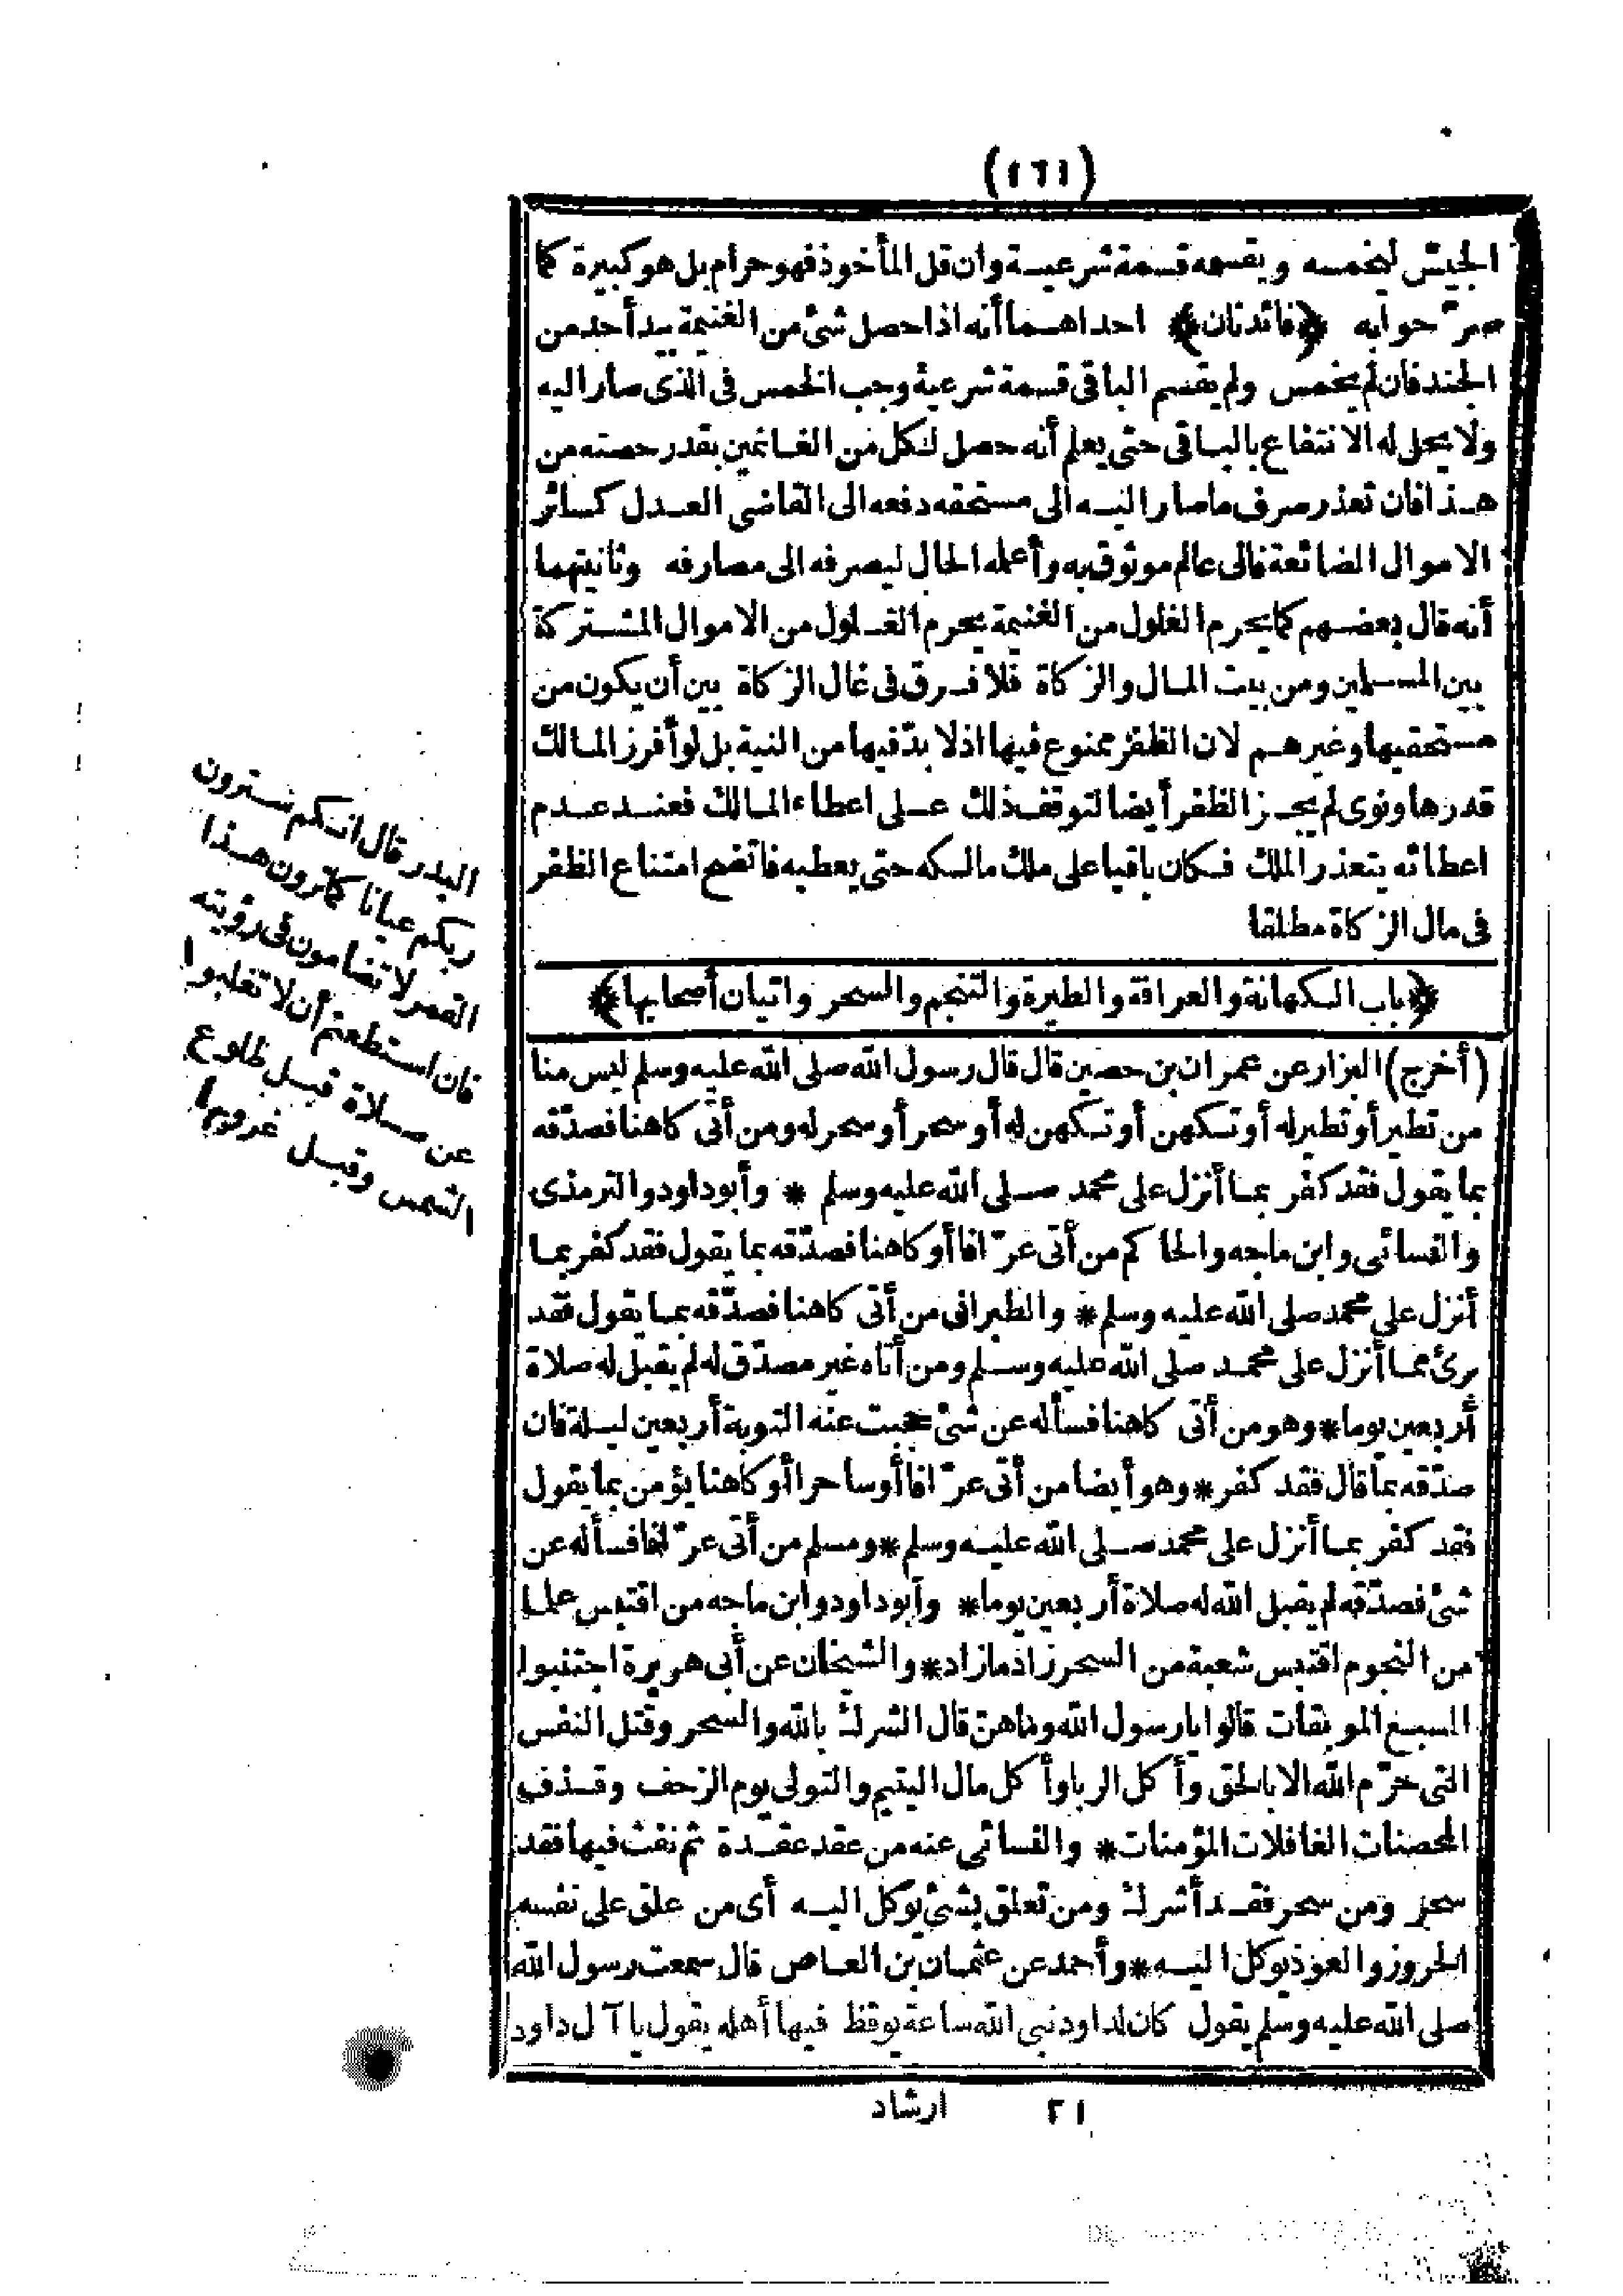 (١٦١)
الجيش ليخمسه ويقسمه قسمة شرعيـة وان قل المأخوذ فهو حرام بل هو كبيرة كما
صرّحوابه ﴿فائدتان﴾ احداهـما أنه اذا حصل شئ من الغنيمة بيد أحد من
الجند فان لم يخمس ولم يقسم الباقى قسمة شرعية وجب الخمس فى الذى صار اليه
ولا يحل له الانتفاع بالباقى حتى يعلم أنه حصل لكل من الغانمين بقدر حصته من
هـذا فان تعذر صرف ما صار اليـه الى مستحقه دفعه الى القاضى العـدل كسائر
الاموال الضائعة فالى عالم موثوق به وأعلمه الحال ليصرفه الى مصارفه وثانيتهما
أنه قال بعضـهم كما يحرم الغلول من الغنيمة يحرم الغـلول من الاموال المشـتركة
بين المسـلمين ومن بيت المـال والزكاة فلا فـرق فى غال الزكاة بين أن يكون من
مستحقيها وغيرهـم لان الظفر ممنوع فيها اذ لا بدّ فيها من النية بل لو أفرز المـالك
قدرها ونوى لم يجـز الظفر أيضا لتوقف ذلك عـلى اعطاء المـالك فعنـد عـدم
اعطائه يتعذر الملك فـكان باقيا على ملك مالـكه حتى يعطيه فاتضح امتناع الظفر
فى مال الزكاة مطلقا
﴿باب الـكهانة والعرافة والطيرة والتنجم والسحر واتيان أصحابها﴾
(أخرج) البزار عن عمران بن حصين قال قال رسول الله صلى الله عليه وسلم ليس منا
من تطير أو تطير له أو تـكهن أو تـكهن له أو سحر أو سحر له ومن أتى كاهنا فصدّقه
بما يقول فقد كفر بمـا أنزل على محمد صـلى الله عليه وسلم * وأبو داود والترمذى
والنسائى وابن ماجه والحاكم من أتى عرّافا أو كاهنا فصدّقه بما يقول فقد كفر بمـا
أنزل على محمد صلى الله عليه وسلم * والطبرانى من أتى كاهنا فصدّقه بمـا يقول فقد
برئ ممـا أنزل على محمـد صلى الله عليه وسـلم ومن أتاه غير مصدّق له لم يقبل له صلاة
أربعين يوما * وهو من أتى كاهنا فسأله عن شئ حجبت عنه التوبة أربعين ليـلة فان
صدّقه بما قال فقد كفر * وهو أيضا من أتى عرّافا أو ساحرا أو كاهنا يؤمن بما يقول
فقد كفر بمـا أنزل على محمد صـلى الله عليـه وسلم * ومسلم من أتى عرّافا فسأله عن
شئ فصدّقه لم يقبل الله له صلاة أربعين يوما * وأبو داود وابن ماجه من اقتبس علمـا
من النجوم اقتبس شعبة من السحر زاد ما زاد * والشيخان عن أبى هريرة اجتنبوا
السبـع الموبقات قالوا يا رسول الله وما هنّ قال الشرك بالله والسحر وقتل النفس
التى حرّم الله الا بالحق وأكل الربا وأكل مال اليتيم والتولى يوم الزحف وقـذف
المحصنات الغافلات المؤمنات * والنسائى عنه من عقد عقـدة ثم نفث فيها فقد
سحر ومن سحر فقـد أشرك ومن تعلق بشئ يوكل اليـه أى من علق على نفسه
الحروز والعوذ يوكل اليـه * وأحمد عن عثمـان بن العـاص قال سمعت رسول الله
صلى الله عليه وسلم يقول كان لداود نبى الله ساعة يوقظ فيها أهله يقول يا آل داود
البدر قال انـكم سـترون
ربكم عيانا كما ترون هـذا
القمر لا تضامون فى رؤيته
فان استطعتم أن لا تغلبوا
عن صـلاة قبـل طلوع
الشمس وقبـل غروبها
٢١ ارشاد